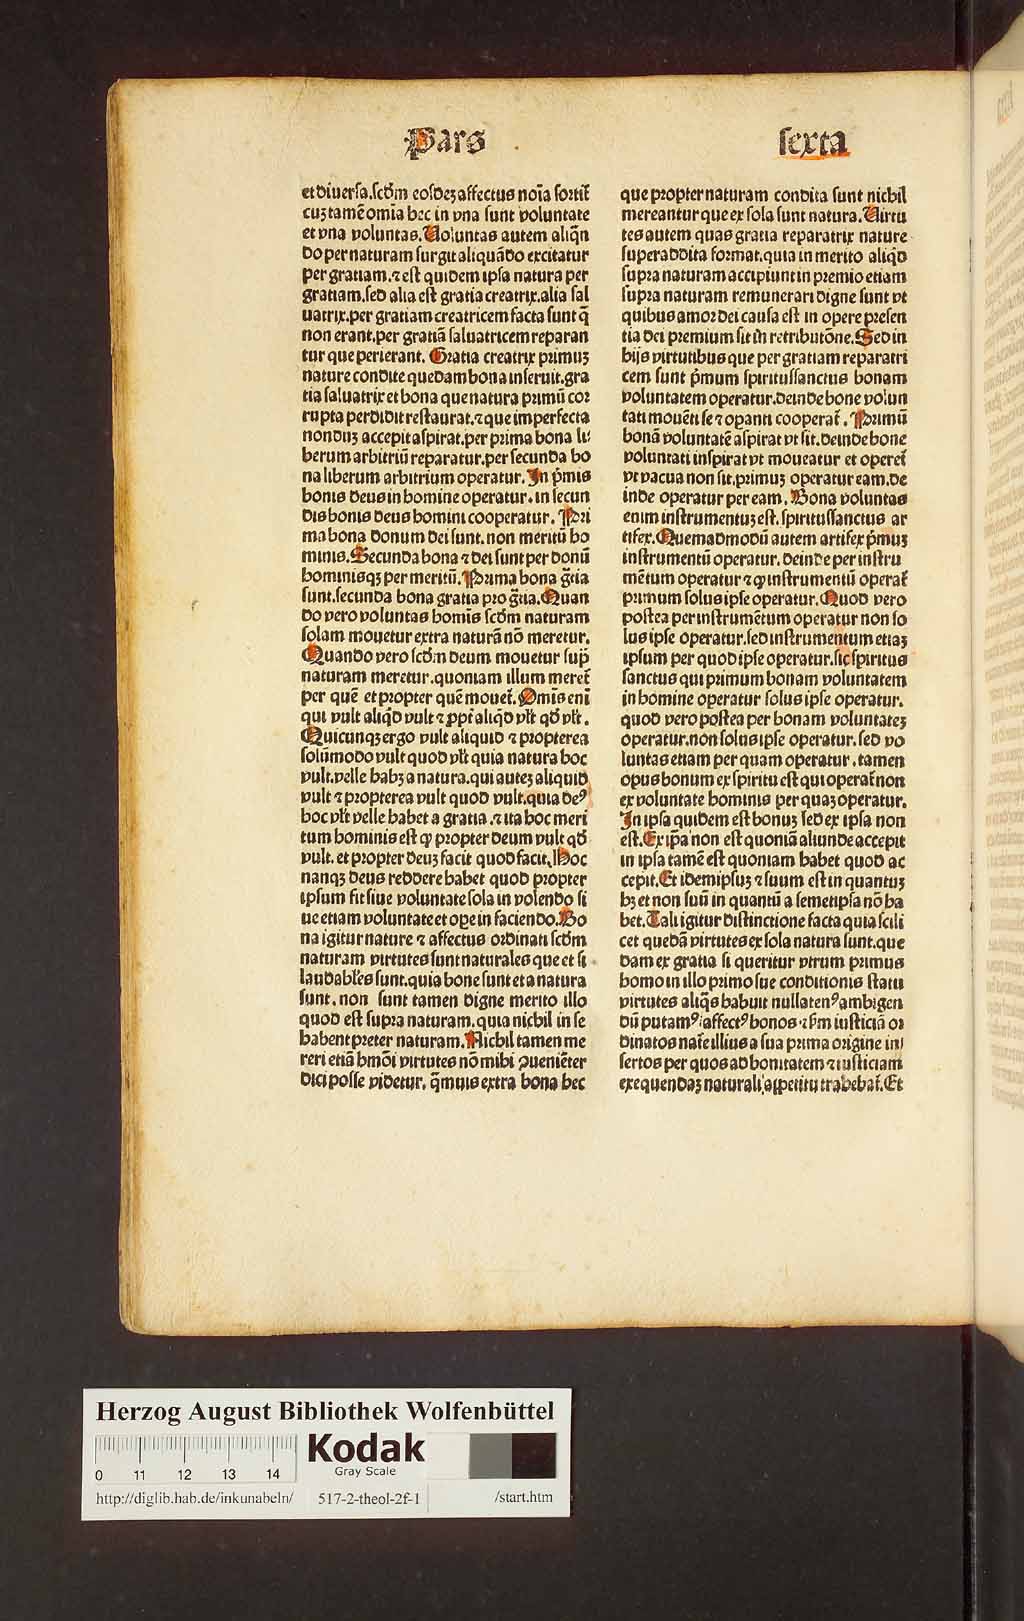 Pars
sexta
et diuersa.scďm eosdeʒ affectus noīa sortiť
cuʒ tamē omīa hec in vna sunt voluntate
et vna voluntas. Voluntas autem aliqñ
do per naturam surgit aliquādo excitatur
per gratiam.⁊ est quidem ipsa natura per
gratiam.sed alia est gratia creatrix.alia sal
uatrix.per gratiam creatricem facta sunt q̄
non erant.per gratiā saluatricem reparan
tur que perierant. Gratia creatrix primuʒ
nature condite quedam bona inseruit.gra
tia saluatrix et bona que natura primū cor
rupta perdidit restaurat.⁊ que imperfecta
nonduʒ accepit aspirat.per prima bona li
berum arbitriū reparatur.per secunda bo
na liberum arbitrium operatur. In p̄mis
bonis deus in homine operatur. in secun
dis bonis deus homini cooperatur. Pri
ma bona donum dei sunt. non meritū ho
minis. Secunda bona ⁊ dei sunt per donū
hominisqʒ per meritū. Prima bona g̃tia
sunt.secunda bona gratia pro g̃tia. Quan
do vero voluntas homīs scďm naturam
solam mouetur extra naturā nō meretur.
Quando vero scďm deum mouetur sup̄
naturam meretur.quoniam illum mereť
per quē et propter quē moueť. Omīs enī
qui vult aliqď vult ⁊ ꝓpť aliqď vľt qď vľt.
Quicunqʒ ergo vult aliquid ⁊ propterea
solūmodo vult quod vľt quia natura hoc
vult.velle habʒ a natura.qui auteʒ aliquid
vult ⁊ propterea vult quod vult.quia deꝰ
hoc vľt velle habet a gratia.⁊ ita hoc meri
tum hominis est ꝙ propter deum vult qď
vult. et propter deuʒ facit quod facit. Hoc
nanqʒ deus reddere habet quod propter
ipsum fit siue voluntate sola in volendo si
ue etiam voluntate et oꝑe in faciendo. Bo
na igitur nature ⁊ affectus ordinati scďm
naturam virtutes sunt naturales que et si
laudabľes sunt.quia bone sunt et a natura
sunt. non sunt tamen digne merito illo
quod est supra naturam.quia nichil in se
habent preter naturam. Nichil tamen me
reri etiā hmōi virtutes nō mihi ꝯueniēter
dici posse videtur. q̃muis extra bona hec
que propter naturam condita sunt nichil
mereantur que ex sola sunt natura. Virtu
tes autem quas gratia reparatrix nature
superaddita format.quia in merito aliqď
supra naturam accipiunt in premio etiam
supra naturam remunerari digne sunt vt
quibus amor dei causa est in opere presen
tia dei premium sit in̄ retributōne. Sed in
hijs virtutibus que per gratiam reparatri
cem sunt p̄mum spiritussanctus bonam
voluntatem operatur.deinde bone volun
tati mouēti se ⁊ opanti cooperať. Primū
bonā voluntatē aspirat vt sit.deinde bone
voluntati inspirat vt moueatur et opereť
vt vacua non sit.primuʒ operatur eam.de
inde operatur per eam. Bona voluntas
enim instrumentuʒ est.spiritussanctus ar
tifex. Quemadmodū autem artifex p̄muʒ
instrumentū operatur.deinde per instru
mētum operatur ⁊ ꝙ instrumentū operať
primum solus ipse operatur. Quod vero
postea per instrumētum operatur non so
lus ipse operatur.sed instrumentum etiaʒ
ipsum per quod ipse operatur.sic spiritus
sanctus qui primum bonam voluntatem
in homine operatur solus ipse operatur.
quod vero postea per bonam voluntateʒ
operatur.non solus ipse operatur. sed vo
luntas etiam per quam operatur. tamen
opus bonum ex spiritu est qui operať non
ex voluntate hominis per quaʒ operatur.
In ipsa quidem est bonuʒ sed ex ipsa non
est. Ex ip̄a non est quoniā aliunde accepit
in ipsa tamē est quoniam habet quod ac
cepit. Et idemipsuʒ ⁊ suum est in quantuʒ
hʒ et non suū in quantū a semetipsa nō ha
bet. Tali igitur distinctione facta quia scili
cet quedā virtutes ex sola natura sunt.que
dam ex gratia si queritur vtrum primus
homo in illo primo sue conditionis statu
virtutes aliq̄s habuit nullatenꝰ ambigen
dū putamꝰ.affectꝰ bonos ⁊ sm̄ iusticiā or
dinatos naťe illius a sua prima origine in
sertos per quos ad bonitatem ⁊ iusticiam
exequendaʒ naturali appetitu trahebať. Et
Herzog August Bibliothek Wolfenbüttel
0 11 12 13 14
Kodak
Gray Scale
http://diglib.hab.de/inkunabeln/ 517-2-theol-2f-1 /start.htm